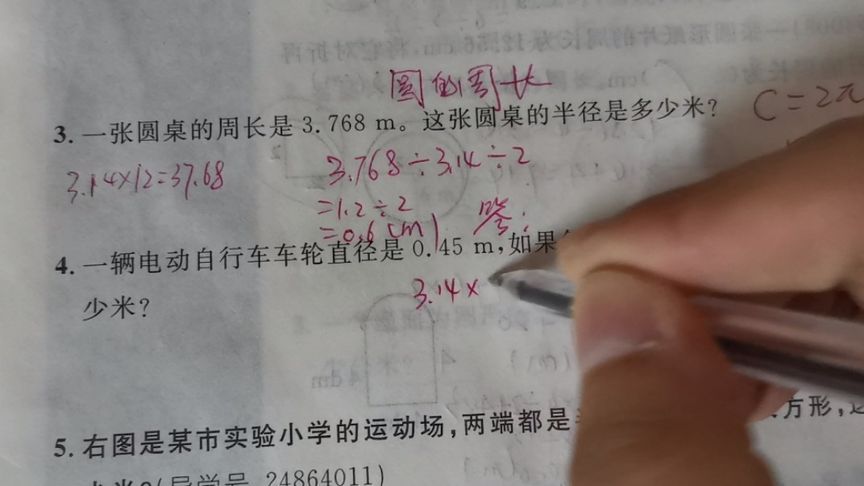 圆的周长
3. 一张圆桌的周长是 3.768 m。这张圆桌的半径是多少米?
C=2π
3.14×12=37.68
3.768÷3.14÷2
=1.2÷2
=0.6(m) 答:
4. 一辆电动自行车车轮直径是 0.45 m,如果
3.14×
少米?
5. 右图是某市实验小学的运动场,两端都是
方形,
24864011)